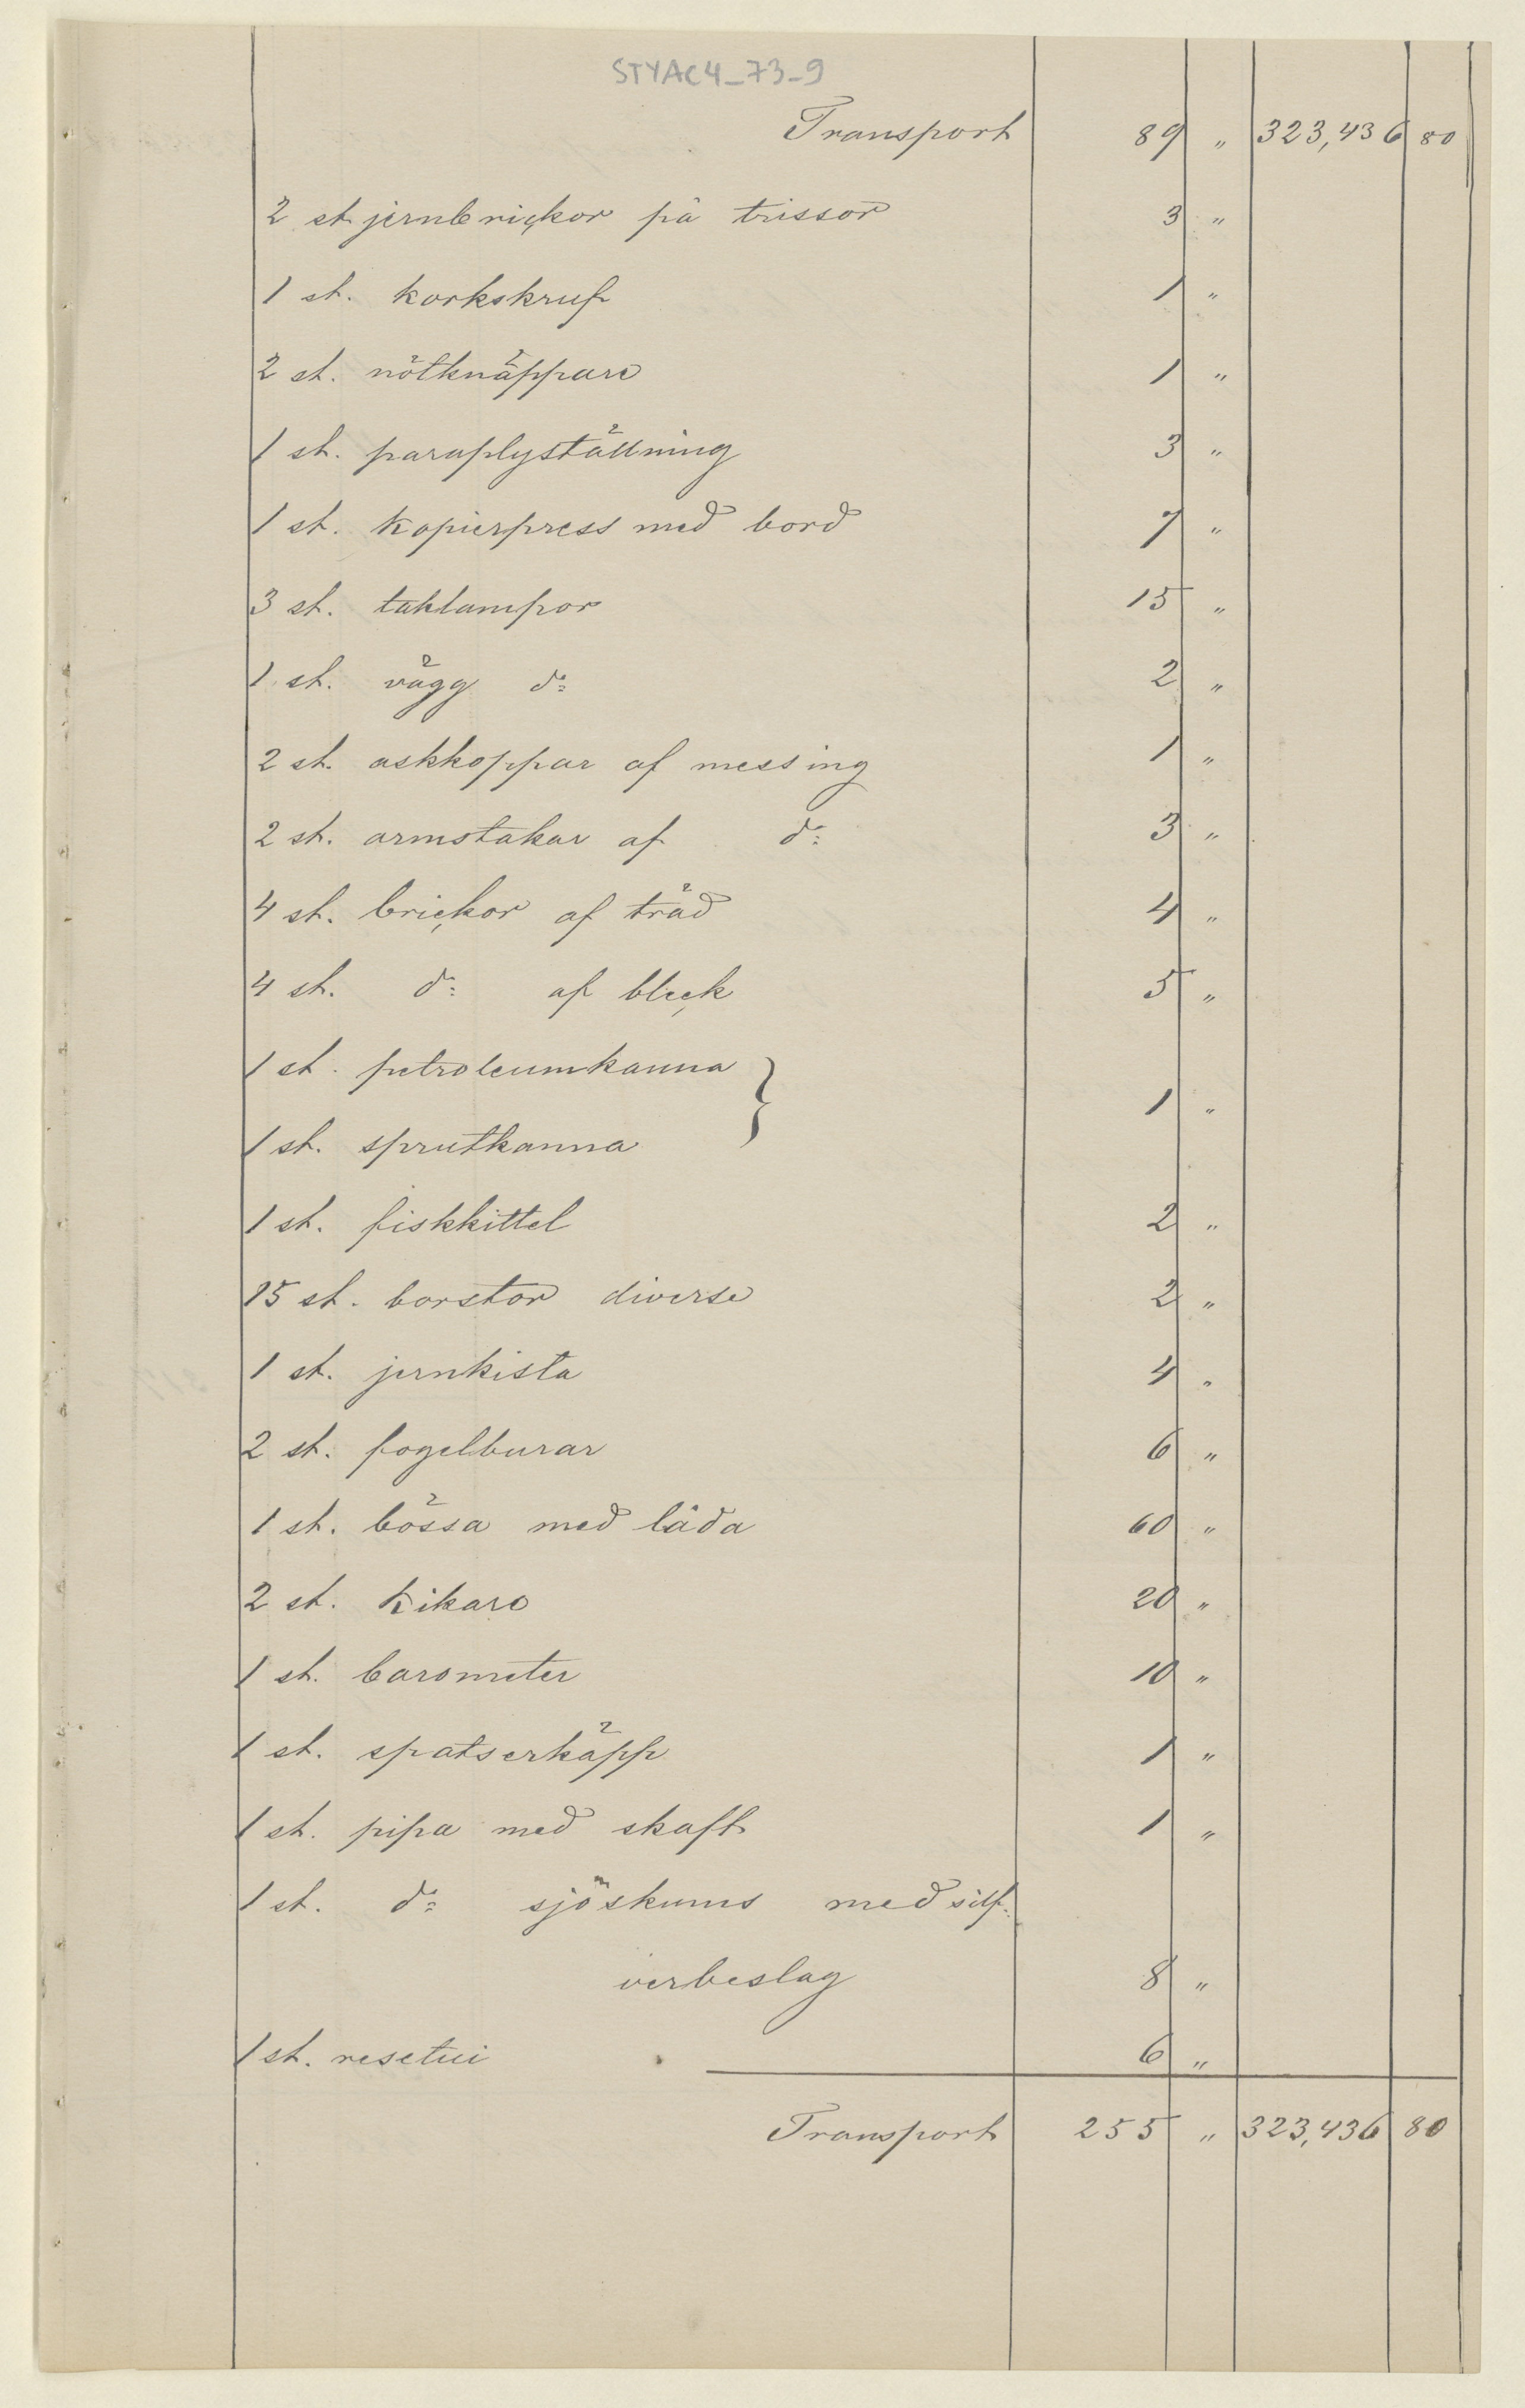 STYAC4_73-9
Transport 89 " 323,436 80
2 st jernbrickor på trissor 3 "
1 st. korkskruf 1 "
2 st. nötknäppare 1 "
1 st. paraplyställning 3 "
1 st. kopierpress med bord 7 "
3 st. taklampor 15 "
1 st. vägg do 2 "
2 st. askkoppar af messing 1 "
2 st. armstakar af do 3 "
4 st. brickor af träd 4 "
4 st. do af bleck 5 "
1 st. petroleumkanna }
1 "
1 st. sprutkanna
1 st. fiskkittel 2 "
15 st. borstor diverse 2 "
1 st. jernkista 4 "
2 st. fogelburar 6 "
1 st. bössa med låda 60 "
2 st. kikare 20 "
1 st. barometer 10 "
1 st. spatserkäpp 1 "
1 st. pipa med skaft 1 "
1 st. do sjöskums med silf-
verbeslag 8 "
1 st. resetui 6 "
Transport 255 " 323,436 80